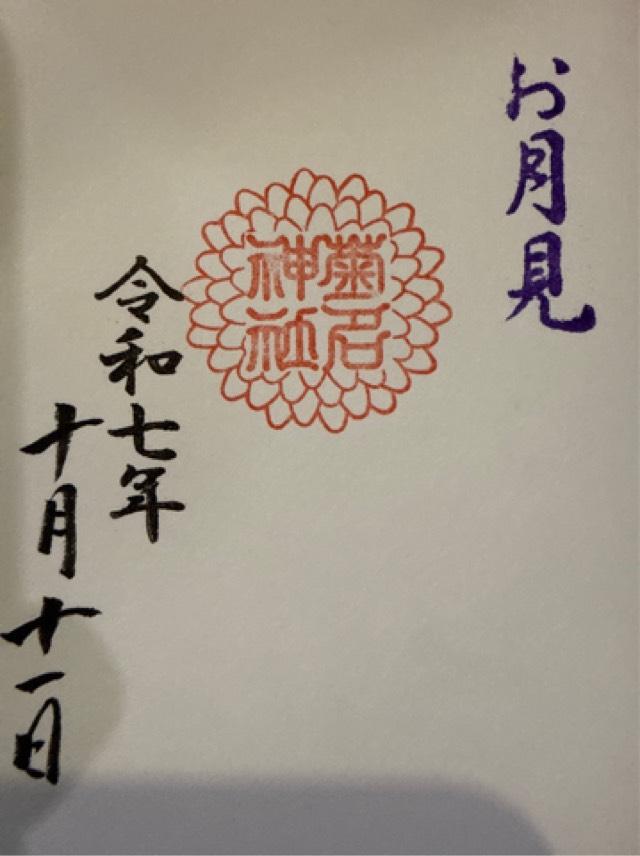 お月見
菊名
神社
令和七年
十月十一日